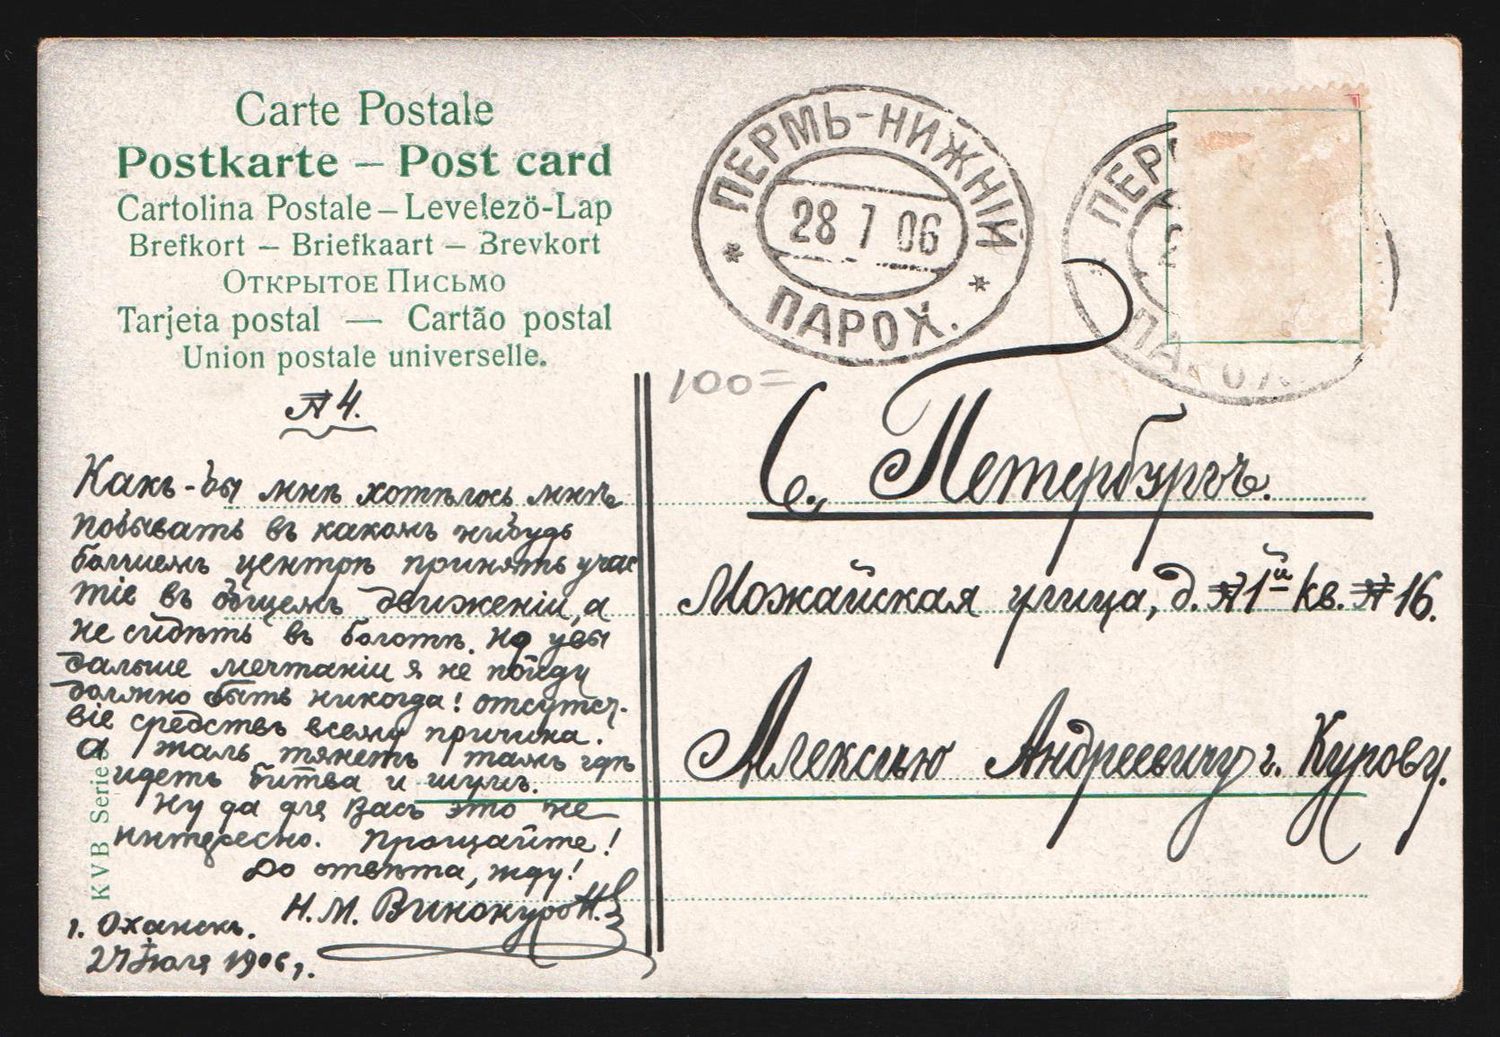 Carte Postale
Postkarte – Post card
Cartolina Postale – Levelező-Lap
Brefkort – Briefkaart – Brevkort
Открытое Письмо
Tarjeta postal — Cartão postal
Union postale universelle.
№ 4.
Какъ-бы мнѣ хотѣлось мнѣ
побывать въ какомъ нибудь
большемъ центрѣ принять учас
тіе въ общемъ движеніи, а
не сидѣть въ болотѣ. Но увы
дальше мечтаніи я не пойду
должно быть никогда! отсутст-
віе средствъ всему причина.
А жаль тянетъ тамъ гдѣ
идетъ битва и шумъ.
Ну да для Васъ это не
интересно. Прощайте!
До отвѣта, жду!
Н. М. Винокуровъ
г. Оханскъ.
27 Іюля 1906 г.
KVB Serie
ПЕРМЬ-НИЖНІЙ
28 7 06
* ПАРОХ. *
ПЕР
ПАРОХ.
100=
С. Петербургъ.
Можайская улица, д. № 1й кв. № 16.
Алексѣю Андреевичу г. Курову.